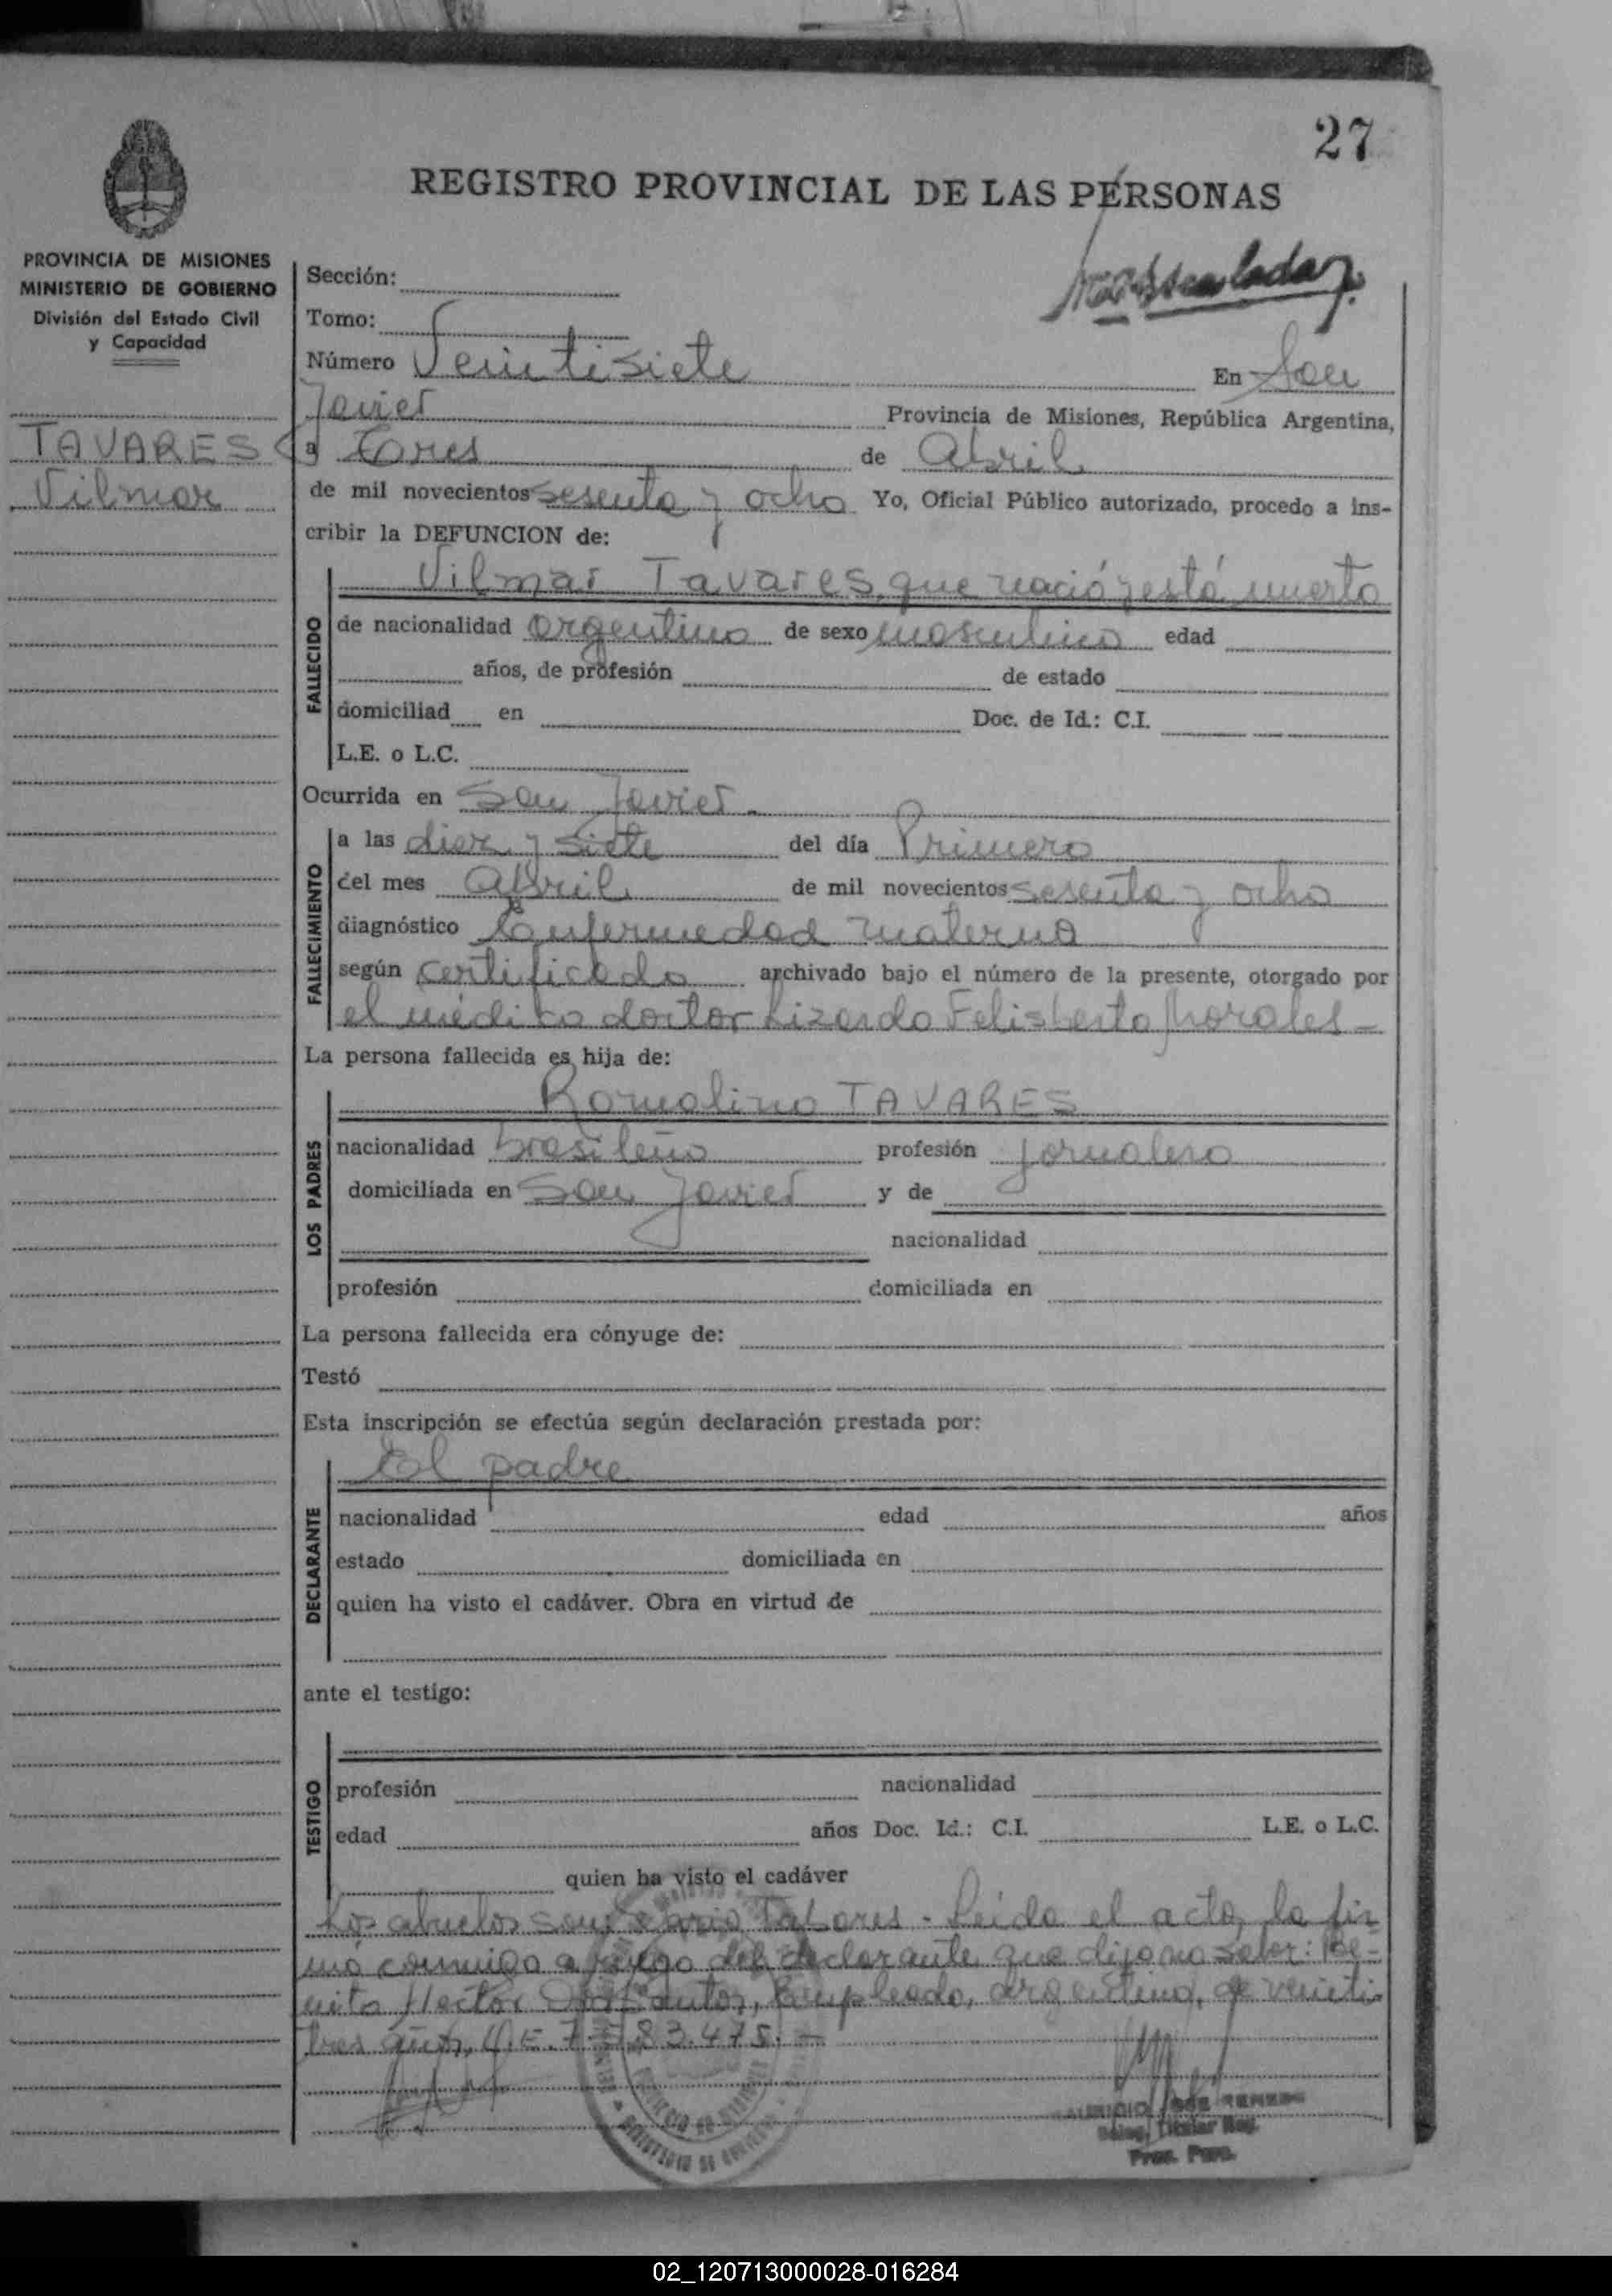 27
REGISTRO PROVINCIAL DE LAS PERSONAS
PROVINCIA DE MISIONES
MINISTERIO DE GOBIERNO
División del Estado Civil
y Capacidad
TAVARES
Vilmar
Sección:
Tomo:
Número Veintisiete En San
Javier Provincia de Misiones, República Argentina,
a Tres de Abril
de mil novecientos sesenta y ocho Yo, Oficial Público autorizado, procedo a ins-
cribir la DEFUNCION de:
FALLECIDO
Vilmar Tavares, que nació y está muerto
de nacionalidad argentino de sexo masculino edad
años, de profesión de estado
domiciliad en Doc. de Id.: C.I.
L.E. o L.C.
Ocurrida en San Javier.
FALLECIMIENTO
a las diez y siete del día Primero
del mes Abril de mil novecientos sesenta y ocho
diagnóstico Enfermedad materna
según certificado archivado bajo el número de la presente, otorgado por
el médico doctor Lizardo Felisberto Morales-
La persona fallecida es hija de:
LOS PADRES
Romalino TAVARES
nacionalidad brasileño profesión jornalero
domiciliada en San Javier y de
nacionalidad
profesión domiciliada en
La persona fallecida era cónyuge de:
Testó
Esta inscripción se efectúa según declaración prestada por:
DECLARANTE
El padre
nacionalidad edad años
estado domiciliada en
quien ha visto el cadáver. Obra en virtud de
ante el testigo:
TESTIGO
profesión nacionalidad
edad años Doc. Id.: C.I. L.E. o L.C.
quien ha visto el cadáver
Los abuelos son: - Leída el acta, la fir
mó conmigo a ruego del declarante que dijo no saber: Be-
nito Hector Dos Santos, Empleado, argentino, de veinti
tres años,
Prov. Pers.
02_120713000028-016284